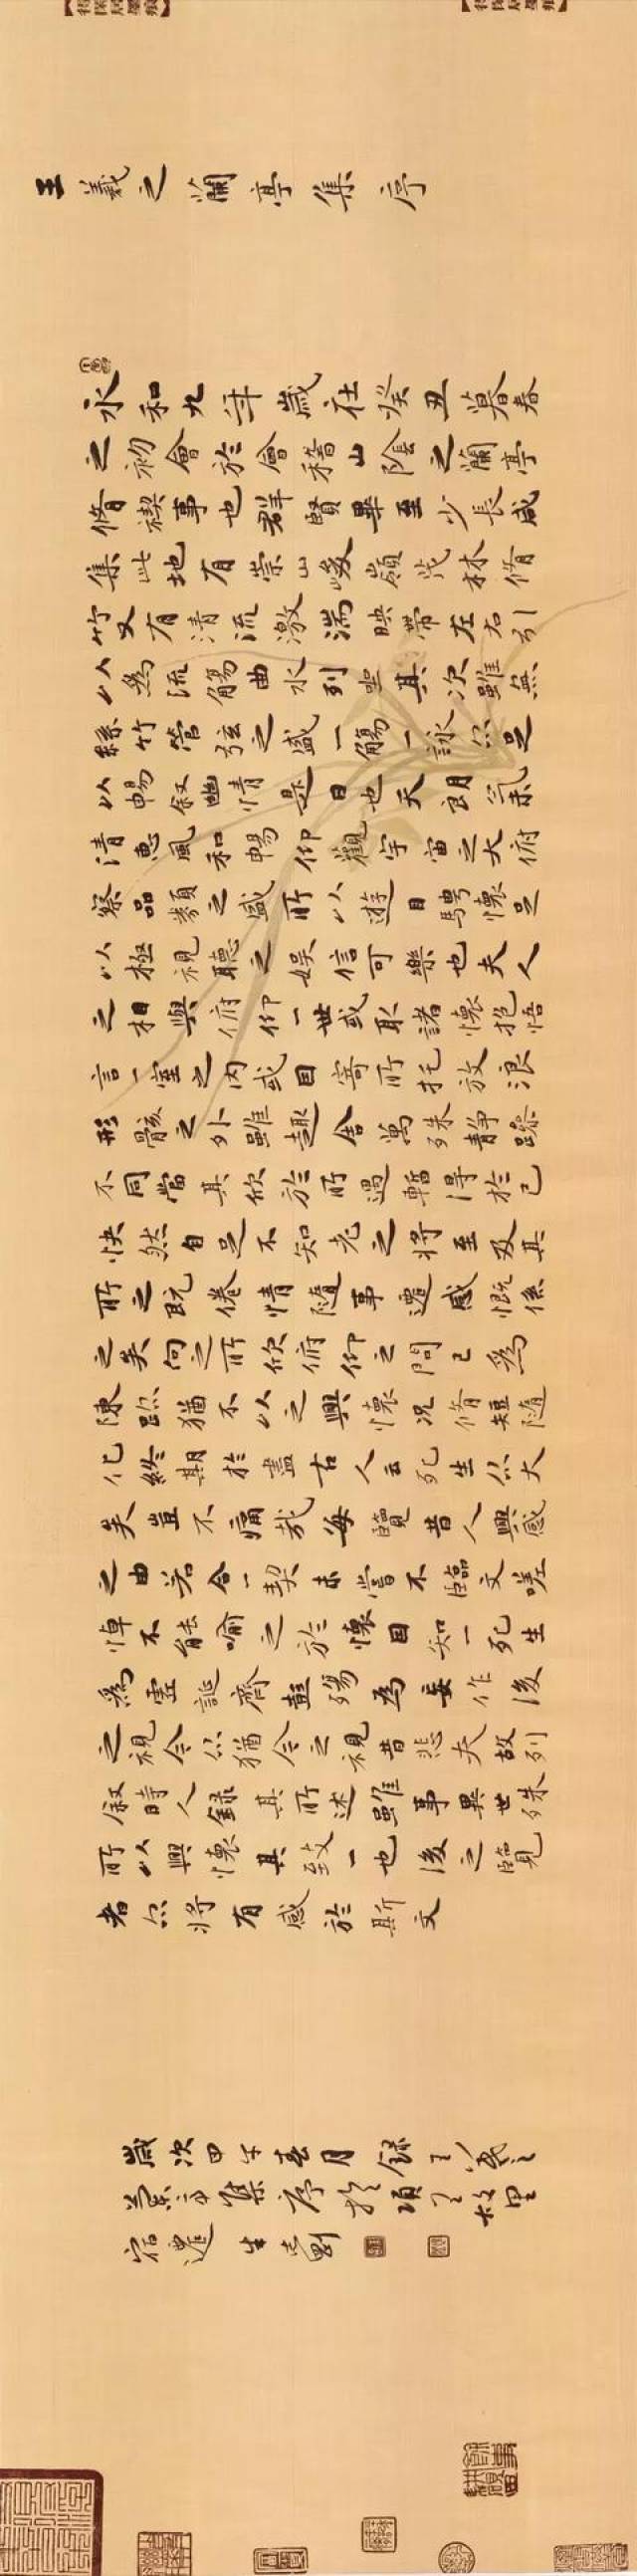 王羲之蘭亭集序
永和九年歲在癸丑暮春
之初會於會稽山陰之蘭亭
脩禊事也群賢畢至少長咸
集此地有崇山峻嶺茂林脩
竹又有清流激湍映帶左右引
以為流觴曲水列坐其次雖無
絲竹管弦之盛一觴一詠亦足
以暢叙幽情是日也天朗氣
清惠風和暢仰觀宇宙之大俯
察品類之盛所以遊目騁懷足
以極視聽之娛信可樂也夫人
之相與俯仰一世或取諸懷抱悟
言一室之內或因寄所托放浪
形骸之外雖趣舍萬殊靜躁
不同當其欣於所遇暫得於己
快然自足不知老之將至及其
所之既倦情隨事遷感慨係
之矣向之所欣俯仰之間已為
陳跡猶不以之興懷況脩短隨
化終期於盡古人云死生亦大
矣豈不痛哉每覽昔人興感
之由若合一契未嘗不臨文嗟
悼不能喻之於懷固知一死生
為虛誕齊彭殤為妄作後
之視今亦猶今之視昔悲夫故列
叙時人錄其所述雖事異世殊
所以興懷其致一也後之覽
者亦將有感於斯文
歲次甲午春月錄王羲之
蘭亭集序於項王故里
宿遷